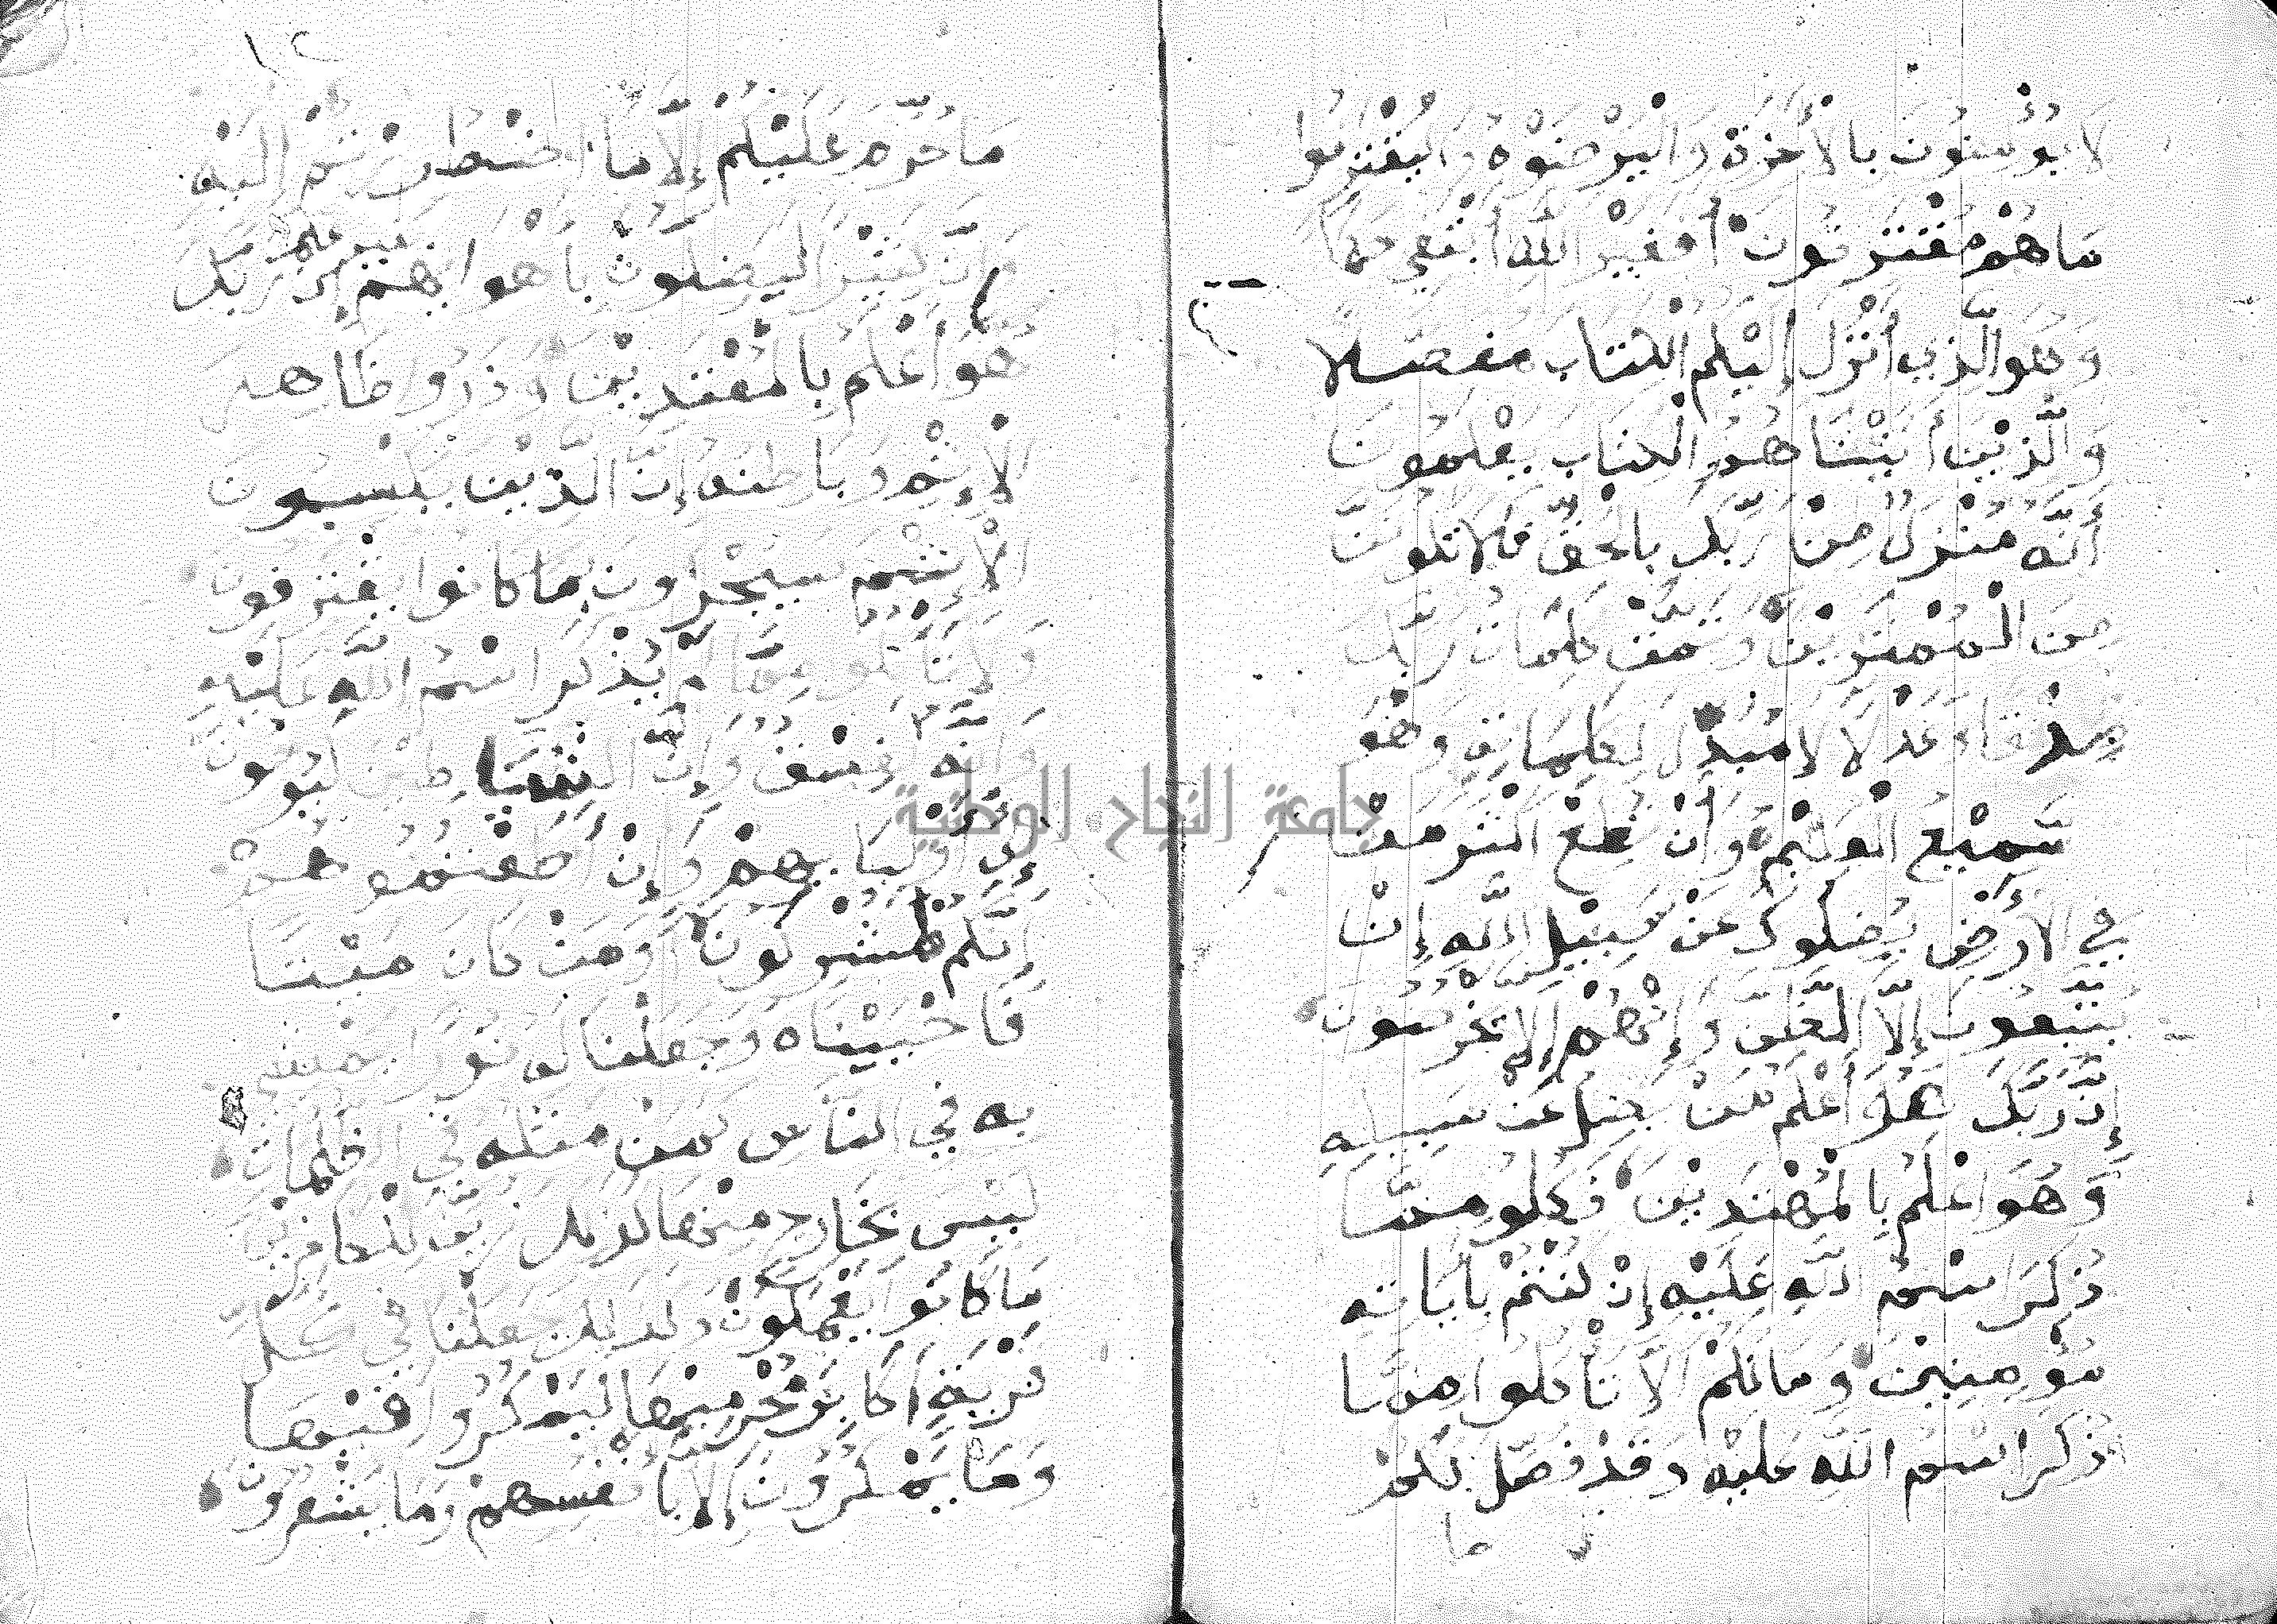 لَا يُؤْمِنُونَ بِالْأَخِرَةِ وَالْيَرْضَوْهُ وَالْيَقْتَرِفُوا
مَا هُمْ مُقْتَرِفُونَ أَفَغَيْرَ اللَّهِ أَبْتَغِي حَكَمًا
وَهُوَ الَّذِي أَنْزَلَ إِلَيْكُمُ الْكِتَابَ مُفَصَّلًا
وَالَّذِيْنَ أَتَيْنَاهُمُ الْكِتَابَ يَعْلَمُونَ
أَنَّهُ مُنْزَلٌ مِنْ رَبِّكَ بِالْحَقِّ فَلَا تَكُونَنَّ
مِنَ الْمُمْتَرِيْنَ وَتَمَّتْ كَلِمَاتُ رَبِّكَ
صِدْقًا وَعَدْلًا لَا مُبَدِّلَ لِكَلِمَاتِهِ وَهُوَ
سَّمِيْعُ الْعَلِيْمُ وَأَنْ تُطِعْ أَكْثَرَ مَنْ
فِي الْأَرْضِ يُضِلُّوكَ عَنْ سَبِيْلِ اللَّهِ إِنْ
يَتَّبِعُونَ إِلَّا الظَّنَّ وَإِنْ هُمْ إِلَّا يَخْرُصُونَ
إِنَّ رَبَّكَ هُوَ أَعْلَمُ مَنْ يَضِلُّ عَنْ سَبِيلِهِ
وَهُوَ اعْلَمُ بِالْمُهْتَدِيْنَ فَكُلُو مِمَّا
ذُكِرَ اسْمُ اللَّهِ عَلَيْهِ إِنْ كُنْتُمْ بِأَيَاتِهِ
مُؤْمِنِيْنَ وَمَا لَكُمْ أَلَّا تَأْكُلُوا مِمَّا
ذُكِرَ اسْمُ اللَّهِ عَلَيْهِ وَقَدْ فَصَّلَ لَكُمْ
ما
مَا حَرَّمَ عَلَيْكُمْ إِلَّا مَا اضْطُرِرْتُمْ إِلَيْهِ
وَإِنَّ كَثِيْرًا لَيُضِلُّونَ بِأَهْوَائِهِمْ بغير علم إِنَّ رَبَّكَ
هُوَ أَعْلَمُ بِالْمُعْتَدِيْنَ وَذَرُوا ظَاهِرَ
الْإِثْمِ وَبَاطِنَهُ إِنَّ الَّذِيْنَ يَكْسِبُونَ
الْإِثْمَ سَيُجْزَاوْنَ بِمَا كَانُوا يَقْتَرِفُونَ
وَلَا تَأْكُلُو مِمَّا لَمْ يُذْكَرِ اسْمُ اللَّهِ عَلَيْهِ
وَإِنَّهُ لَفِسْقٌ وَإِنَّ الشَّيَاطِيْنَ لَيُوحُونَ
إِلَى أَوْلِيَائِهِمْ وَإِنْ أَطَعْتُمُو هُمْ
إِنَّكُمْ لَمُشْرِكُونَ أَوَمَنْ كَانَ مَيْتًا
فَأَحْيَيْنَاهُ وَجَعَلْنَا لَهُ نُوْرًا يَمْشِي
بِهِ فِي النَّاسِ كَمَنْ مَثَلُهُ فِي الظُّلُمَاتِ
لَيْسَ بِخَارِجٍ مِنْهَا كَذَلِكَ زُيِّنَ لِلْكَافِرِيْنَ
مَا كَانُوا يَعْمَلُوْنَ وَكَذَلِكَ جَعَلْنَا فِي كُلِّ
قَرْيَةٍ أَكَابِرَ مُجْرِمِيْهَا لِيَمْكُرُوا فِيْهَا
وَمَا يَمْكُرُوْنَ إِلَّا بِأَنْفُسِهِمْ وَمَا يَشْعُرُوْنَ
جامعة النجاح الوطنية